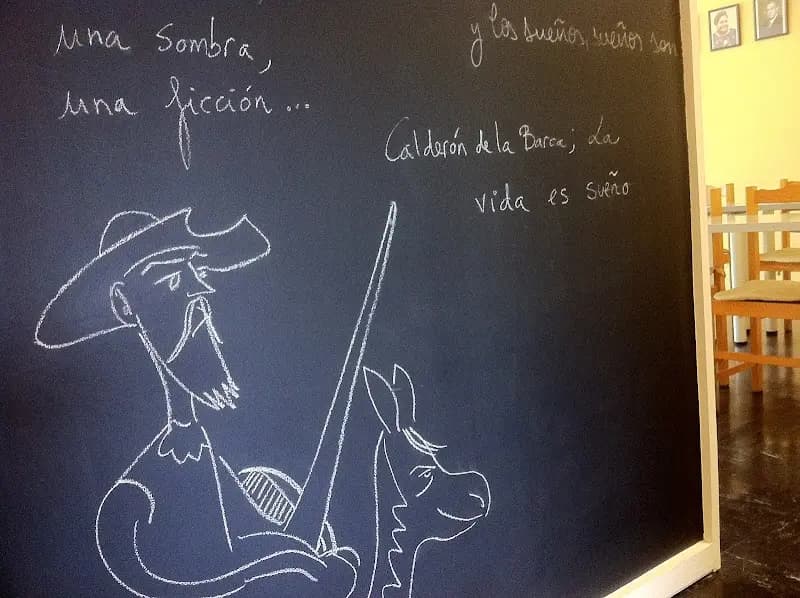 una sombra,
una ficción...
y los sueños, sueños son
Calderón de la Barca; La
vida es sueño